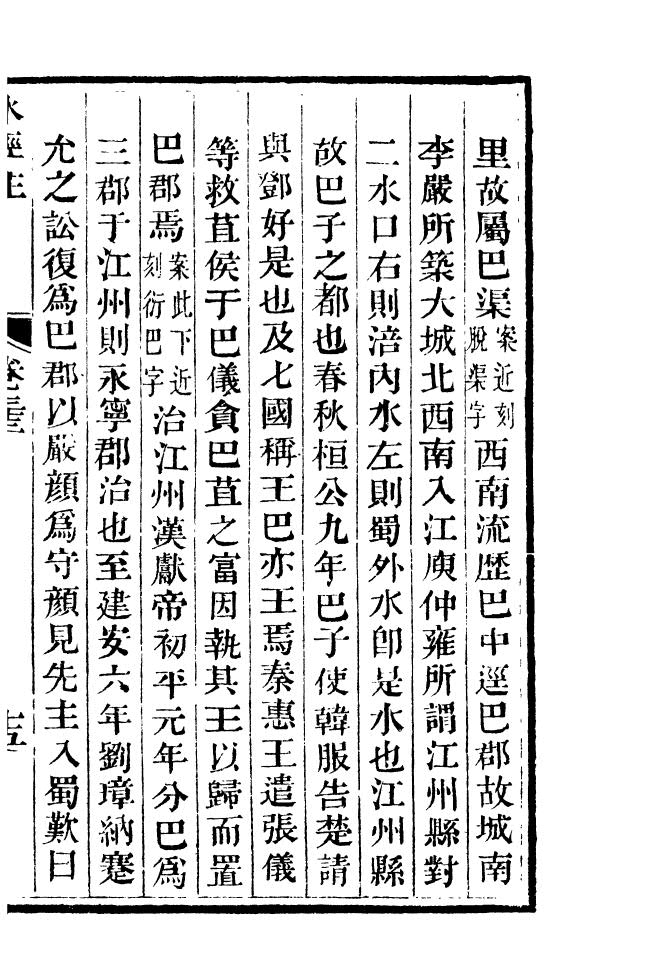 里故屬巴渠案近刻脫渠字西南流歷巴中逕巴郡故城南
李嚴所築大城北西南入江庾仲雍所謂江州縣對
二水口右則涪內水左則蜀外水卽是水也江州縣
故巴子之都也春秋桓公九年巴子使韓服告楚請
與鄧好是也及七國稱王巴亦王焉秦惠王遣張儀
等救苴侯于巴儀貪巴苴之富因執其王以歸而置
巴郡焉案此下近刻衍巴字治江州漢獻帝初平元年分巴爲
三郡于江州則永寧郡治也至建安六年劉璋納蹇
允之訟復爲巴郡以嚴顔爲守顔見先主入蜀歎曰
水經注 卷三十三 十五